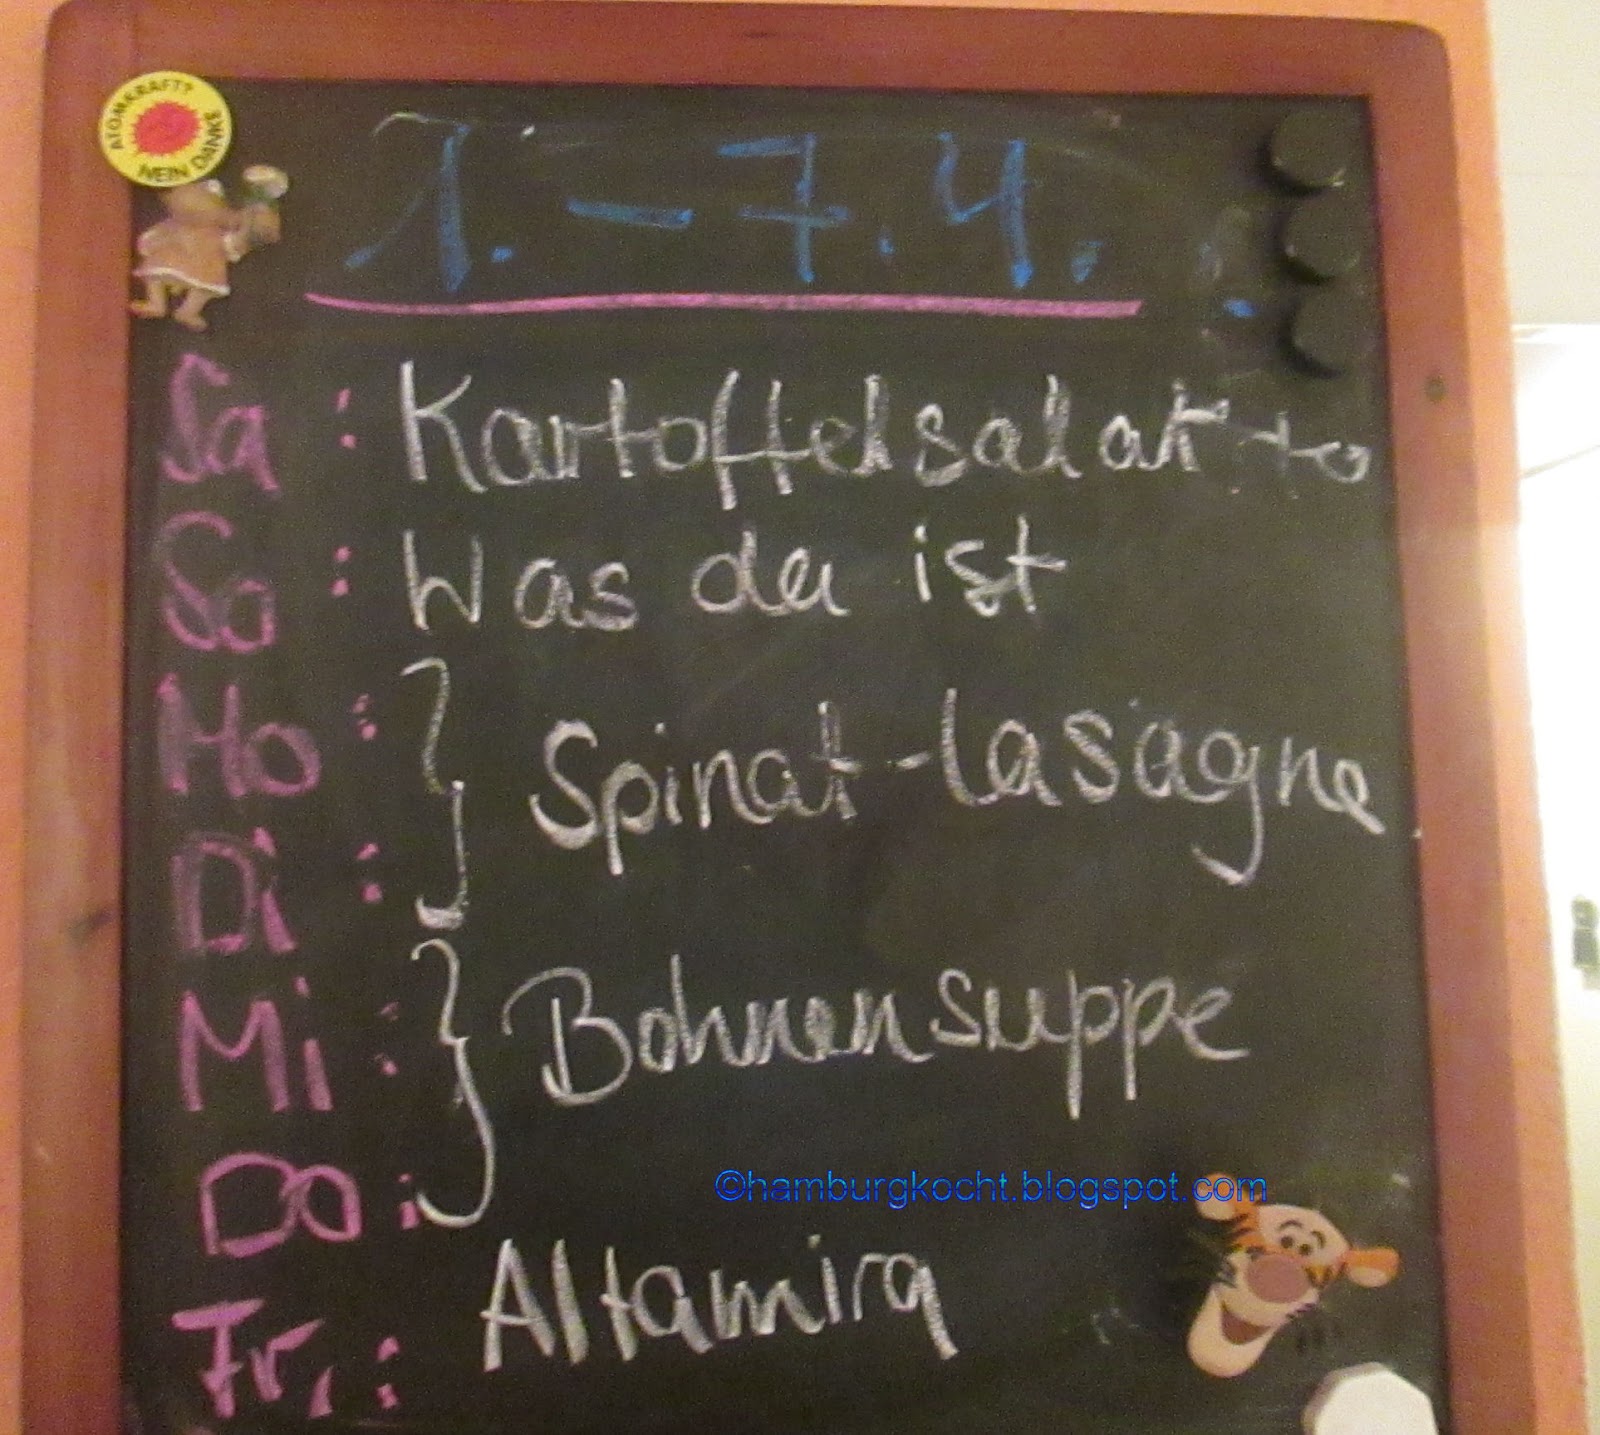 ATOMKRAFT?
NEIN DANKE
1.-7.4.
Sa : Kartoffelsalat to
So : Was da ist
Mo : } Spinat-Lasagne
Di :
Mi : } Bohnensuppe
Do :
©hamburgkocht.blogspot.com
Fr. : Altamira